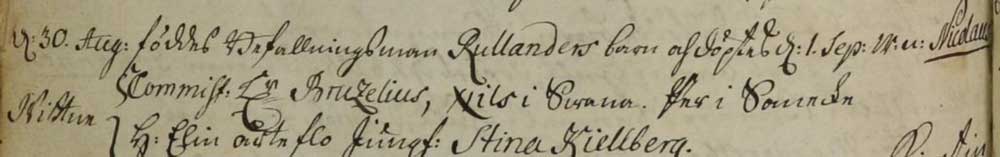 d: 30. Aug: föddes Befallningsman Rullanders barn och döptes d: 1. Sep: N. n: Nicolaus
Commiss: Er Bruzelius, Nils i Swana. Per i
Wittne
H: Elin Jungf: Stina Kiellberg.